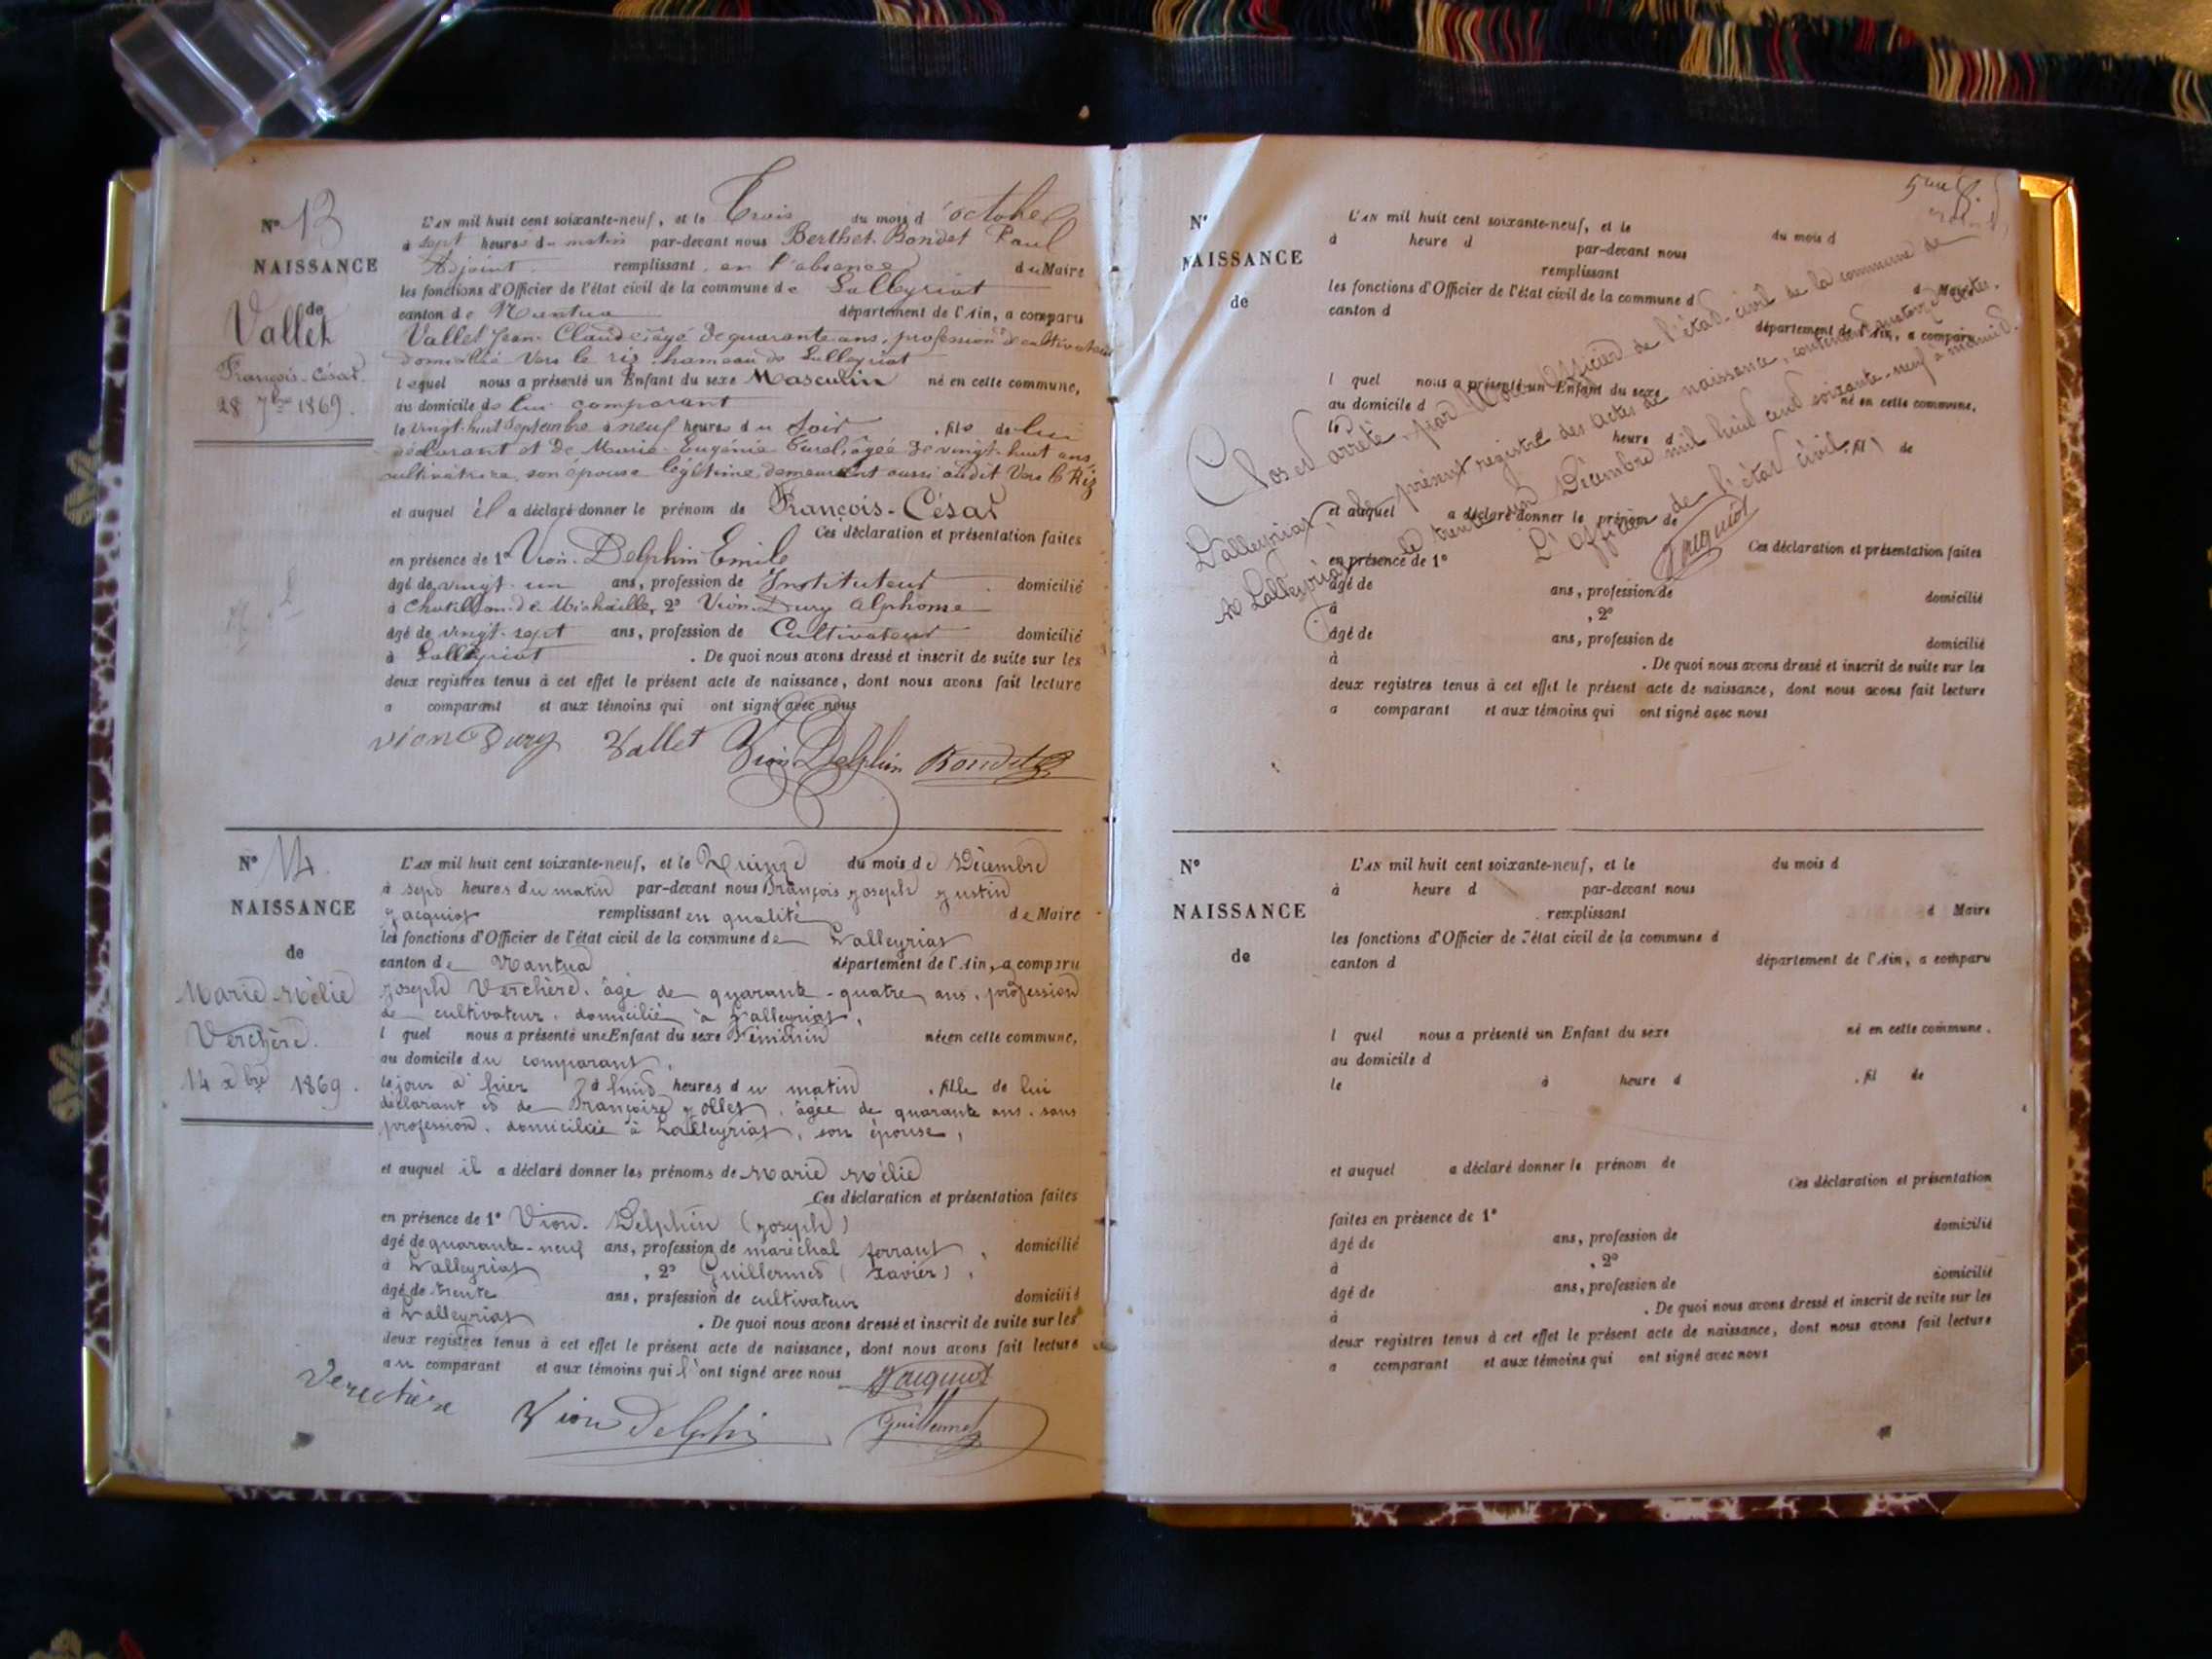 N° 13
NAISSANCE
de
Vallet
François-César
28 7bre 1869.
L'AN mil huit cent soixante-neuf, et le Trois du mois d'octobre
à sept heures du matin par-devant nous Berthet-Bondet Paul
Adjoint remplissant en l'absence du Maire
les fonctions d'Officier de l'état civil de la commune de Lalleyriat
canton de Nantua département de l'Ain, a comparu
Vallet Jean-Claude, âgé de quarante ans, profession de cultivateur
domicilié Vers le riz, hameau de Lalleyriat
lequel nous a présenté un Enfant du sexe Masculin né en cette commune,
au domicile de lui comparant
le vingt-huit septembre à neuf heures du soir, fils de lui
déclarant et de Marie-Eugénie âgée de vingt-huit ans,
cultivatrice, son épouse légitime demeurant aussi audit Vers le Riz
et auquel il a déclaré donner le prénom de François-César
Ces déclaration et présentation faites
en présence de 1° Vion-Delphin Emile
âgé de vingt-un ans, profession de Instituteur domicilié
à Chatillon-de-Michaille, 2° Vion-Dury Alphonse
âgé de vingt-sept ans, profession de Cultivateur domicilié
à Lalleyriat. De quoi nous avons dressé et inscrit de suite sur les
deux registres tenus à cet effet le présent acte de naissance, dont nous avons fait lecture
a comparant et aux témoins qui ont signé avec nous
vion Dury Vallet Vion Delphin Bondet
N° 14.
NAISSANCE
de
Marie-Mélie
Verchère.
14 xbre 1869.
L'AN mil huit cent soixante-neuf, et le Quinze du mois de Décembre
à sept heures du matin par-devant nous François Joseph Justin
Jacquiot remplissant en qualité de Maire
les fonctions d'Officier de l'état civil de la commune de Lalleyriat
canton de Nantua département de l'Ain, a comparu
Joseph Verchère, âgé de quarante-quatre ans, profession
de cultivateur, domicilié à Lalleyriat,
l quel nous a présenté une Enfant du sexe Féminin née en cette commune,
au domicile du comparant,
le jour d'hier à huit heures du matin, fille de lui
déclarant et de Françoise Jollet, âgée de quarante ans, sans
profession, domiciliée à Lalleyriat, son épouse,
et auquel il a déclaré donner les prénoms de Marie Mélie
Ces déclaration et présentation faites
en présence de 1° Vion-Delphin (Joseph)
âgé de quarante-neuf ans, profession de maréchal ferrant, domicilié
à Lalleyriat, 2° Guillermet (Xavier),
âgé de trente ans, profession de cultivateur domicilié
à Lalleyriat. De quoi nous avons dressé et inscrit de suite sur les
deux registres tenus à cet effet le présent acte de naissance, dont nous avons fait lecture
au comparant et aux témoins qui l'ont signé avec nous Jacquiot
Verchère Vion Delphin Guillermet
5me
N°
NAISSANCE
de
L'AN mil huit cent soixante-neuf, et le du mois d
à heure d par-devant nous
remplissant d Maire
les fonctions d'Officier de l'état civil de la commune d
canton d département de l'Ain, a comparu
l quel nous a présenté un Enfant du sexe né en cette commune,
au domicile d
le heure d fil de
et auquel a déclaré donner le prénom de
Ces déclaration et présentation faites
en présence de 1°
âgé de ans, profession de domicilié
à , 2°
âgé de ans, profession de domicilié
à . De quoi nous avons dressé et inscrit de suite sur les
deux registres tenus à cet effet le présent acte de naissance, dont nous avons fait lecture
a comparant et aux témoins qui ont signé avec nous
Clos et arrêté par Nous Officier de l'état-civil de la commune de
Lalleyriat, le présent registre des actes de naissance, contenant quatorze actes.
A Lalleyriat le trente un Décembre mil huit cent soixante-neuf à minuit.
L'Officier de l'état civil,
Jacquiot
N°
NAISSANCE
de
L'AN mil huit cent soixante-neuf, et le du mois d
à heure d par-devant nous
remplissant d Maire
les fonctions d'Officier de l'état civil de la commune d
canton d département de l'Ain, a comparu
l quel nous a présenté un Enfant du sexe né en cette commune.
au domicile d
le à heure d . fil de
et auquel a déclaré donner le prénom de
Ces déclaration et présentation
faites en présence de 1° domicilié
âgé de ans, profession de
à , 2° domicilié
âgé de ans, profession de
à . De quoi nous avons dressé et inscrit de suite sur les
deux registres tenus à cet effet le présent acte de naissance, dont nous avons fait lecture
a comparant et aux témoins qui ont signé avec nous